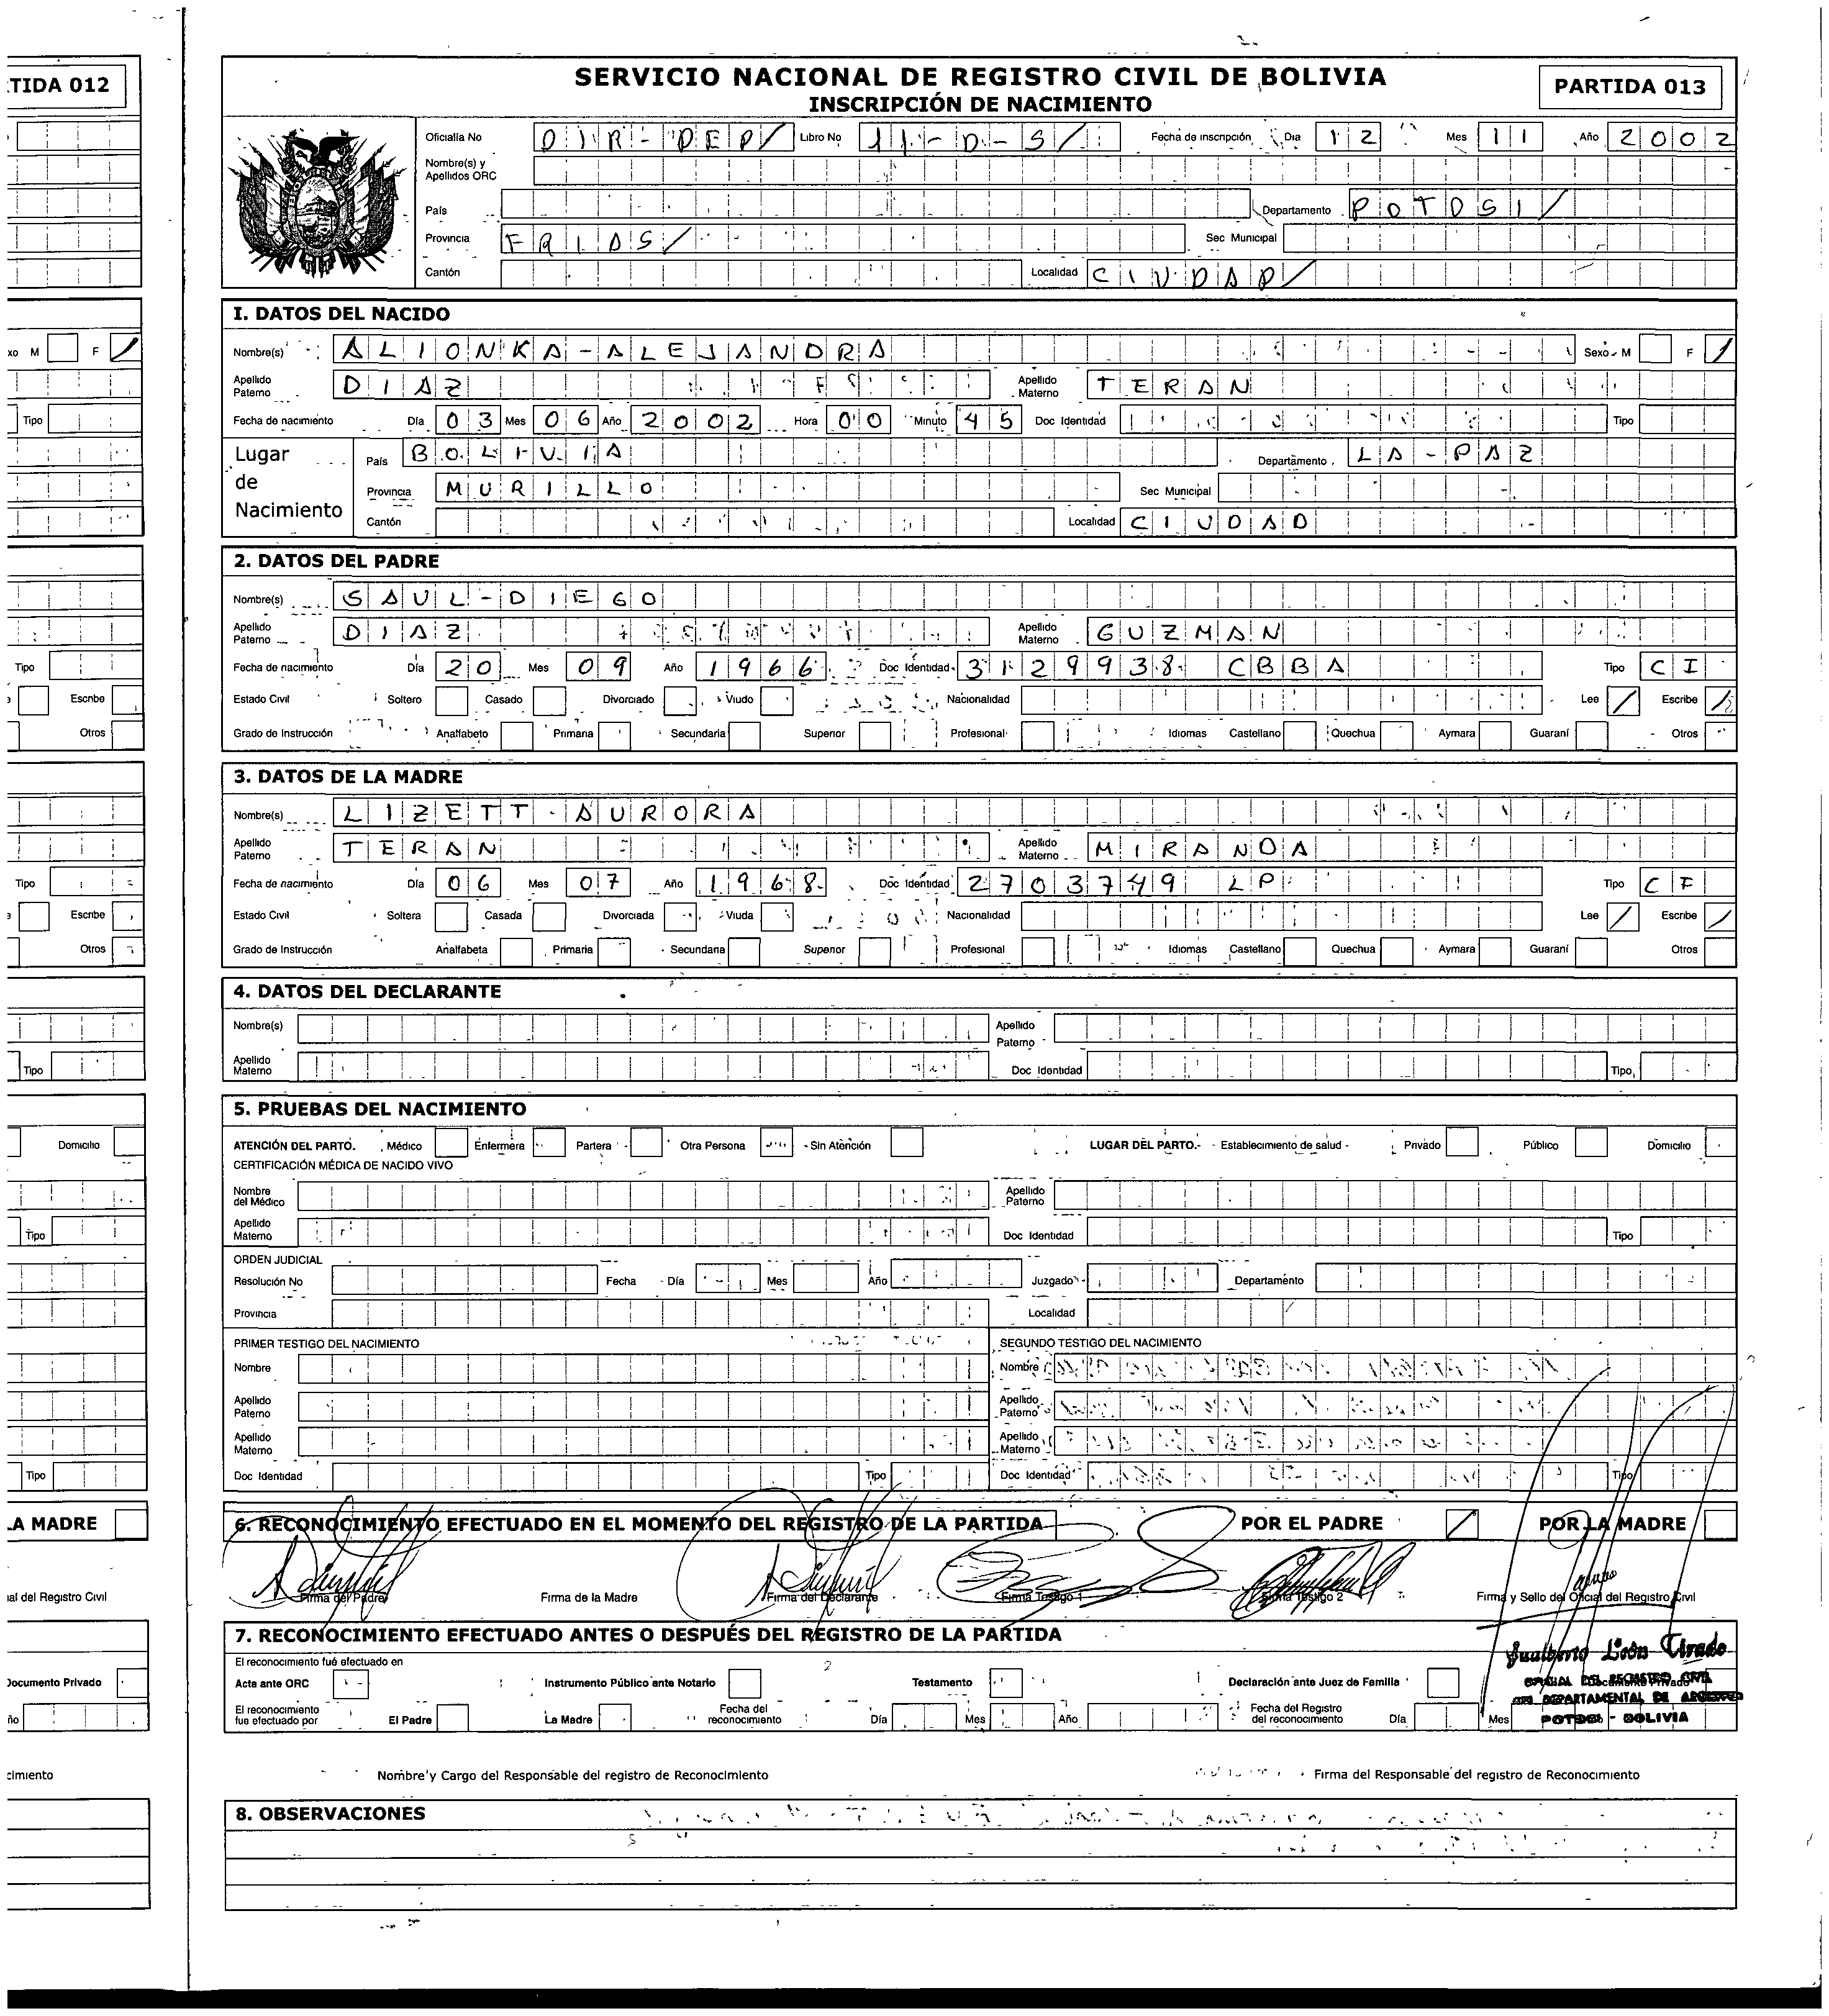 TIDA 012
SERVICIO NACIONAL DE REGISTRO CIVIL DE BOLIVIA
INSCRIPCIÓN DE NACIMIENTO
PARTIDA 013
Oficialía No DIR-DEP/ Libro No 11-D-S/ Fecha de inscripción Día 12 Mes 11 Año 2002
Nombre(s) y Apellidos ORC
País Departamento POTOSI/
Provincia FRIAS/ Sec Municipal
Cantón Localidad CIUDAD/
I. DATOS DEL NACIDO
Nombre(s) ALIONKA-ALEJANDRA Sexo - M F /
Apellido Paterno DIAZ Apellido Materno TERAN
Fecha de nacimiento Día 03 Mes 06 Año 2002 Hora 00 Minuto 45 Doc Identidad Tipo
Lugar de Nacimiento
País BOLIVIA Departamento LA-PAZ
Provincia MURILLO Sec Municipal
Cantón Localidad CIUDAD
2. DATOS DEL PADRE
Nombre(s) SAUL-DIEGO
Apellido Paterno DIAZ Apellido Materno GUZMAN
Fecha de nacimiento Día 20 Mes 09 Año 1966 Doc Identidad 3129938 CBBA Tipo CI
Estado Civil Soltero Casado Divorciado Viudo Nacionalidad Lee / Escribe /
Grado de Instrucción Analfabeto Primaria Secundaria Superior Profesional Idiomas Castellano Quechua Aymara Guaraní Otros
3. DATOS DE LA MADRE
Nombre(s) LIZETT-AURORA
Apellido Paterno TERAN Apellido Materno MIRANDA
Fecha de nacimiento Día 06 Mes 07 Año 1968 Doc Identidad 2703749 LP Tipo CF
Estado Civil Soltera Casada Divorciada Viuda Nacionalidad Lee / Escribe /
Grado de Instrucción Analfabeta Primaria Secundaria Superior Profesional Idiomas Castellano Quechua Aymara Guaraní Otros
4. DATOS DEL DECLARANTE
Nombre(s) Apellido Paterno
Apellido Materno Doc Identidad Tipo
5. PRUEBAS DEL NACIMIENTO
ATENCIÓN DEL PARTO. Médico Enfermera Partera Otra Persona Sin Atención LUGAR DEL PARTO.- Establecimiento de salud - Privado Público Domicilio
CERTIFICACIÓN MÉDICA DE NACIDO VIVO
Nombre del Médico Apellido Paterno
Apellido Materno Doc Identidad Tipo
ORDEN JUDICIAL
Resolución No Fecha Día Mes Año Juzgado Departamento
Provincia Localidad
PRIMER TESTIGO DEL NACIMIENTO SEGUNDO TESTIGO DEL NACIMIENTO
Nombre Nombre
Apellido Paterno Apellido Paterno
Apellido Materno Apellido Materno
Doc Identidad Tipo Doc Identidad Tipo
6. RECONOCIMIENTO EFECTUADO EN EL MOMENTO DEL REGISTRO DE LA PARTIDA POR EL PADRE / POR LA MADRE
Firma del Padre Firma de la Madre Firma del Declarante Firma Testigo 1 Firma Testigo 2 Firma y Sello del Oficial del Registro Civil
7. RECONOCIMIENTO EFECTUADO ANTES O DESPUÉS DEL REGISTRO DE LA PARTIDA
Gualberto León Tirado
El reconocimiento fué efectuado en
Acta ante ORC Instrumento Público ante Notario Testamento Declaración ante Juez de Familia Documento Privado
OFICIAL DEL REGISTRO CIVIL
DEPARTAMENTAL DE
El reconocimiento fue efectuado por El Padre La Madre Fecha del reconocimiento Día Mes Año Fecha del Registro del reconocimiento Día Mes
POTOSI - BOLIVIA
Nombre y Cargo del Responsable del registro de Reconocimiento Firma del Responsable del registro de Reconocimiento
8. OBSERVACIONES
xo M F /
Tipo
Tipo
Escribe
Otros
Tipo
Escribe
Otros
Tipo
Domicilio
Tipo
Tipo
A MADRE
al del Registro Civil
Documento Privado
ño
cimiento